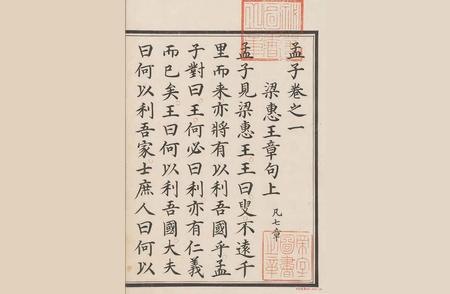 孟子卷之一
梁惠王章句上 凡七章
孟子見梁惠王王曰叟不遠千
里而来亦將有以利吾國乎孟
子對曰王何必曰利亦有仁義
而已矣王曰何以利吾國大夫
曰何以利吾家士庶人曰何以